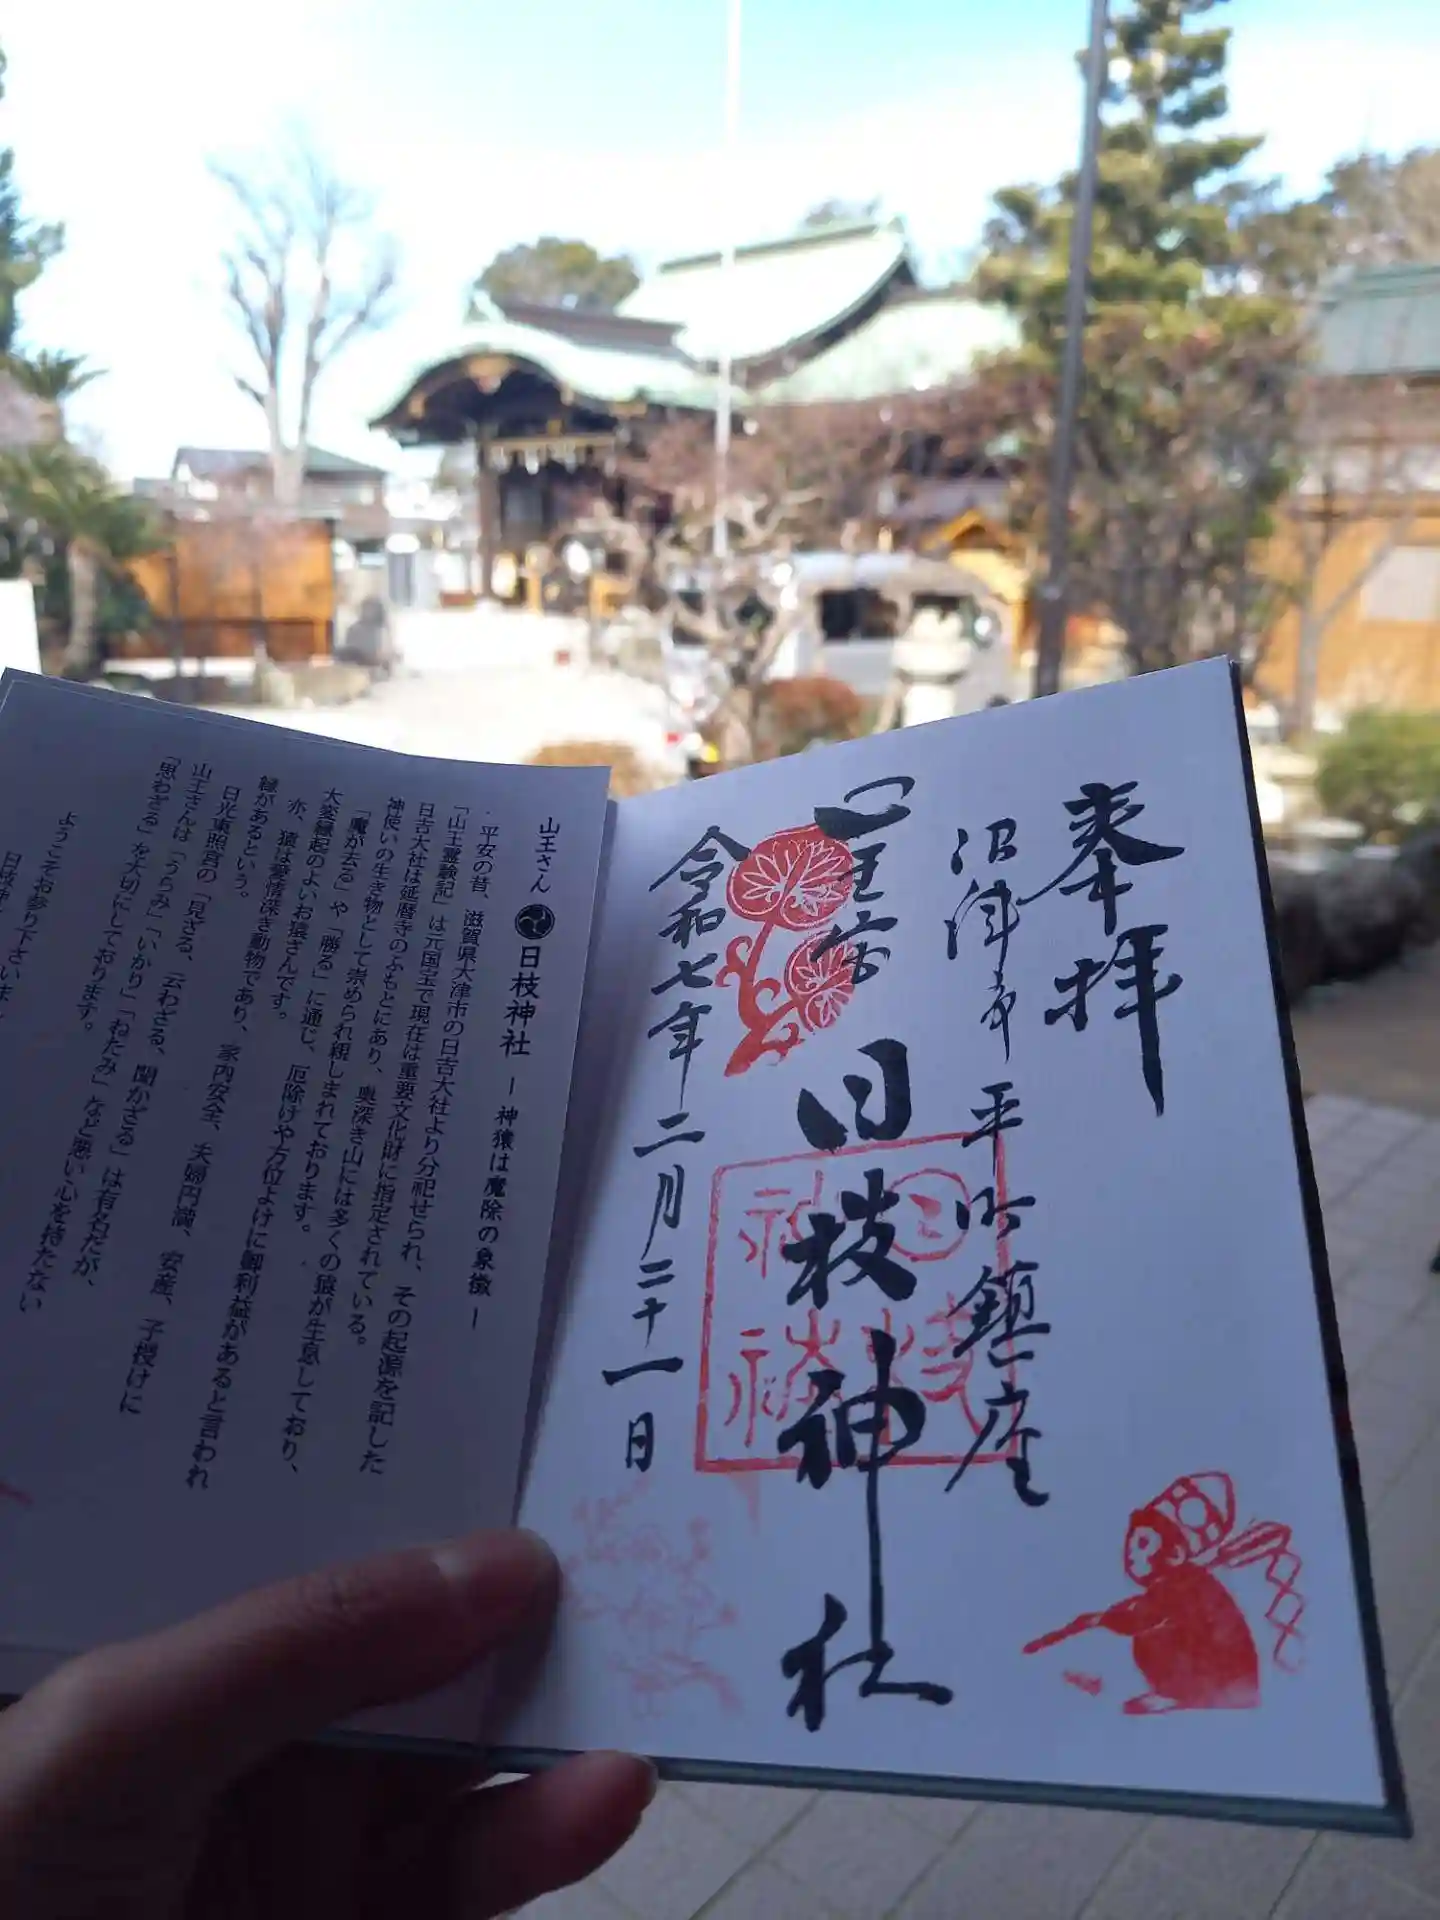 奉拝
沼津市平町鎮座
日枝神社
令和七年二月二十一日
山王さん 日枝神社 ー神猿は魔除の象徴ー
平安の昔、滋賀県大津市の日吉大社より分祀せられ、その起源を記した
「山王霊験記」は元国宝で現在は重要文化財に指定されている。
日吉大社は延暦寺のふもとにあり、奥深き山には多くの猿が生息しており、
神使いの生き物として崇められ親しまれております。
「魔が去る」や「勝る」に通じ、厄除けや方位よけに御利益があると言われ
大変縁起のよいお猿さんです。
亦、猿は愛情深き動物であり、家内安全、夫婦円満、安産、子授けに
縁があるという。
日光東照宮の「見ざる、云わざる、聞かざる」は有名だが、
山王さんは「うらみ」「いかり」「ねたみ」など悪い心を持たない
「思わざる」を大切にしております。
ようこそお参り下さいま